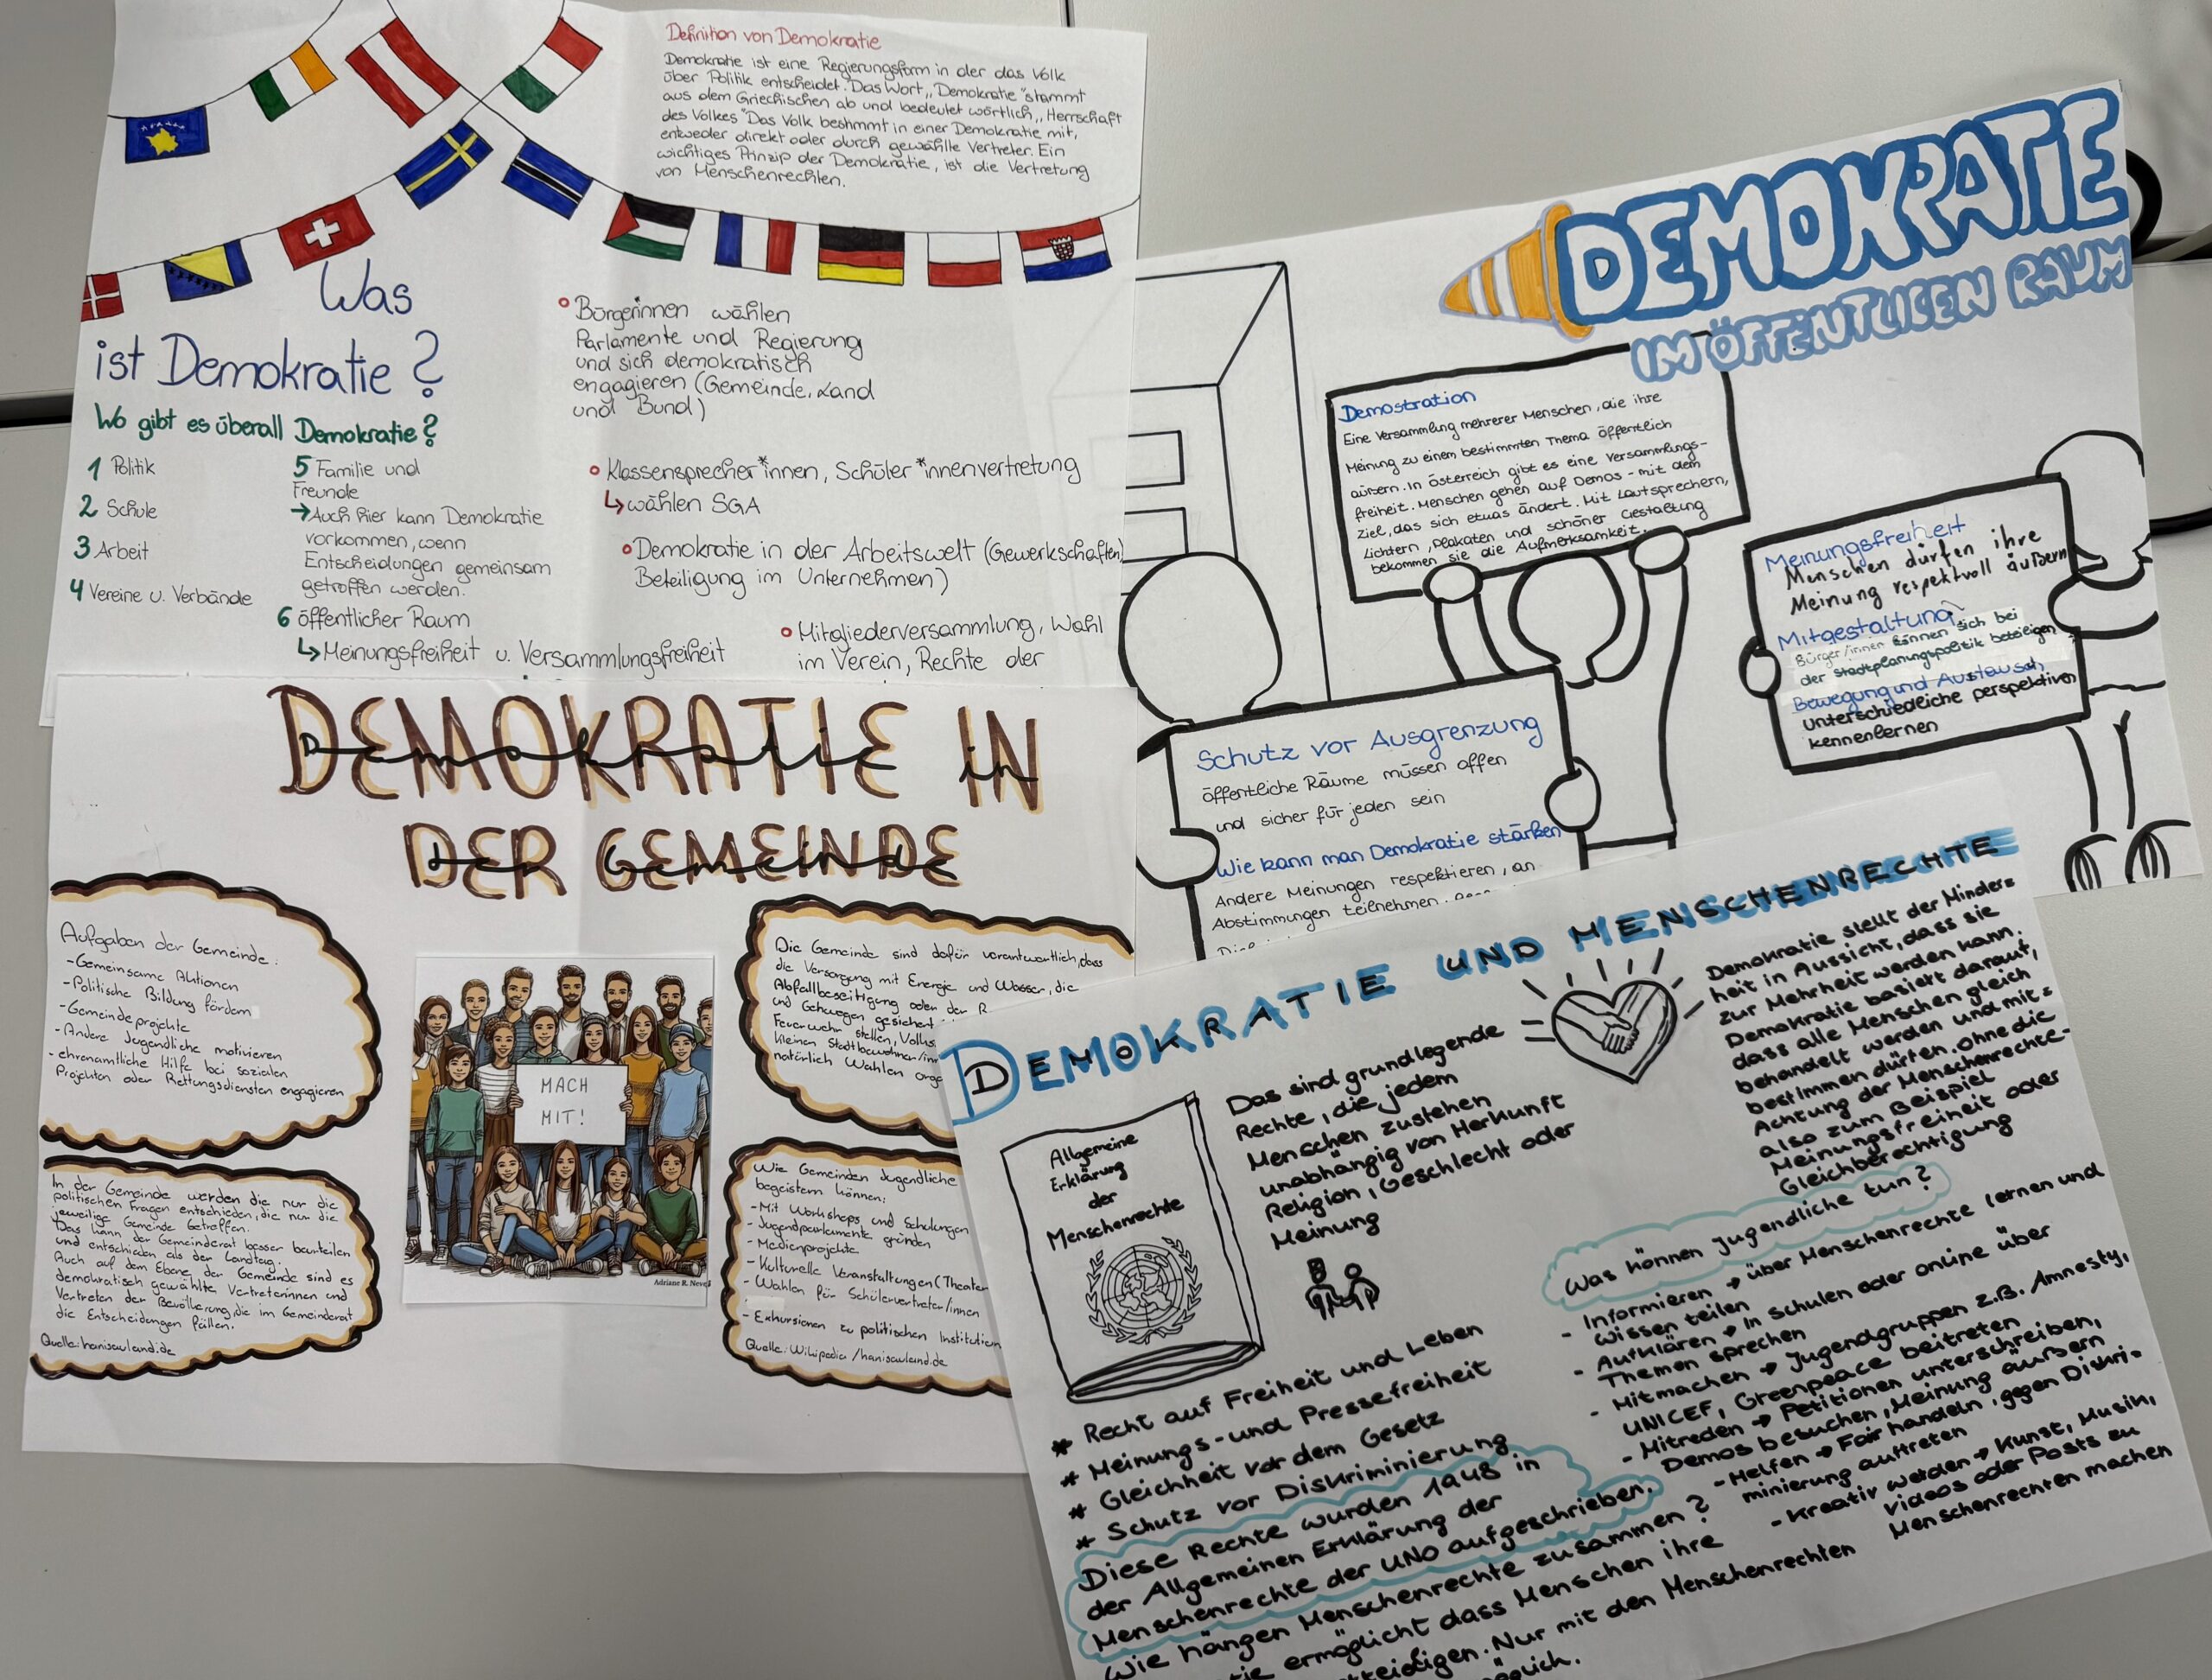 Definition von Demokratie
Demokratie ist eine Regierungsform in der das Volk
über Politik entscheidet. Das Wort „Demokratie" stammt
aus dem Griechischen ab und bedeutet wörtlich „Herrschaft
des Volkes" Das Volk bestimmt in einer Demokratie mit,
entweder direkt oder durch gewählte Vertreter. Ein
wichtiges Prinzip der Demokratie, ist die Vertretung
von Menschenrechten.
Was
ist Demokratie?
Wo gibt es überall Demokratie?
1 Politik
2 Schule
3 Arbeit
4 Vereine u. Verbände
5 Familie und
Freunde
→Auch hier kann Demokratie
vorkommen, wenn
Entscheidungen gemeinsam
getroffen werden.
6 öffentlicher Raum
↳Meinungsfreiheit u. Versammlungsfreiheit
Bürger*innen wählen
Parlamente und Regierung
und sich demokratisch
engagieren (Gemeinde, Land
und Bund)
Klassensprecher*innen, Schüler*innenvertretung
↳wählen SGA
Demokratie in der Arbeitswelt (Gewerkschaften,
Beteiligung im Unternehmen)
Mitgliederversammlung, Wahl
im Verein, Rechte der
DEMOKRATIE
IM ÖFFENTLICEN RAUM
Demostration
Eine Versammlung mehrerer Menschen, die ihre
Meinung zu einem bestimmten Thema öffentlich
äußern. In Österreich gibt es eine Versammlungs-
freiheit. Menschen gehen auf Demos - mit dem
Ziel, das sich etwas ändert. Mit Lautsprechern,
Lichtern, Plakaten und schöner Gestaltung
bekommen sie die Aufmerksamkeit.
Meinungsfreiheit
Menschen dürfen ihre
Meinung respektvoll äußern
Mitgestaltung
Bürger/innen können sich bei
der Stadtplanungspolitik beteiligen
Bewegung und Austausch
Unterschiedliche perspektiven
kennenlernen
Schutz vor Ausgrenzung
öffentliche Räume müssen offen
und sicher für jeden sein
Wie kann man Demokratie stärken
Andere Meinungen respektieren, an
Abstimmungen teilnehmen.
DEMOKRATIE IN
Demokratie in
DER GEMEINDE
der Gemeinde
Aufgaben der Gemeinde:
-Gemeinsame Aktionen
-Politische Bildung fördern
-Gemeindeprojekte
-Andere Jugendliche motivieren
-ehrenamtliche Hilfe bei sozialen
Projekten oder Rettungsdiensten engagieren
In der Gemeinde werden die nur die
politischen Fragen entschieden, die nur die
jeweilige Gemeinde betreffen.
Das kann der Gemeinderat besser beurteilen
und entschieden als der Landtag.
Auch auf dem Ebene der Gemeinde sind es
demokratisch gewählte Vertreterinnen und
Vertreten der Bevölkerung, die im Gemeinderat
die Entscheidungen fällen.
Quelle: hanisauland.de
MACH
MIT!
Adriane R. Neve
Die Gemeinde sind dafür verantwortlich, dass
die Versorgung mit Energie und Wasser, die
Abfallbeseitigung oder der R
und Gehwegen gesichert
Feuerwehr stellen, Volks
kleinen Stadtbewohner/inn
natürlich Wahlen orga
Wie Gemeinden Jugendliche
begeistern können:
-Mit Workshops und Schulungen
-Jugendparlamente gründen
-Medienprojekte
-Kulturelle Veranstaltungen (Theater
-Wahlen für Schülervertreter/innen
-Exkursionen zu politischen Institution
Quelle: Wikipedia /hanisauland.de
DEMOKRATIE UND MENSCHENRECHTE
Allgemeine
Erklärung
der
Menschenrechte
Das sind grundlegende
Rechte, die jedem
Menschen zustehen
unabhängig von Herkunft
Religion, Geschlecht oder
Meinung
Demokratie stellt der Minder=
heit in Aussicht, dass sie
zur Mehrheit werden kann.
Demokratie basiert darauf,
dass alle Menschen gleich
behandelt werden und mit=
bestimmen dürfen. Ohne die
Achtung der Menschenrechte-
also zum Beispiel
Meinungsfreiheit oder
Gleichberechtigung
* Recht auf Freiheit und Leben
* Meinungs- und Pressefreiheit
* Gleichheit vor dem Gesetz
* Schutz vor Diskriminierung
Diese Rechte wurden 1948 in
der Allgemeinen Erklärung der
Menschenrechte der UNO aufgeschrieben.
Wie hängen Menschenrechte zusammen?
tie ermöglicht dass Menschen ihre
teidigen. Nur mit den Menschenrechten
öglich.
Was können Jugendliche tun?
- Informieren → über Menschenrechte lernen und
Wissen teilen
- Aufklären → In Schulen oder online über
Themen sprechen
- Mitmachen → Jugendgruppen z.B. Amnesty,
UNICEF, Greenpeace beitreten
- Mitreden → Petitionen unterschreiben,
Demos besuchen, Meinung äußern
- Helfen → Fair handeln, gegen Diskri-
minierung auftreten
- Kreativ werden → Kunst, Musik,
Videos oder Posts zu
Menschenrechten machen